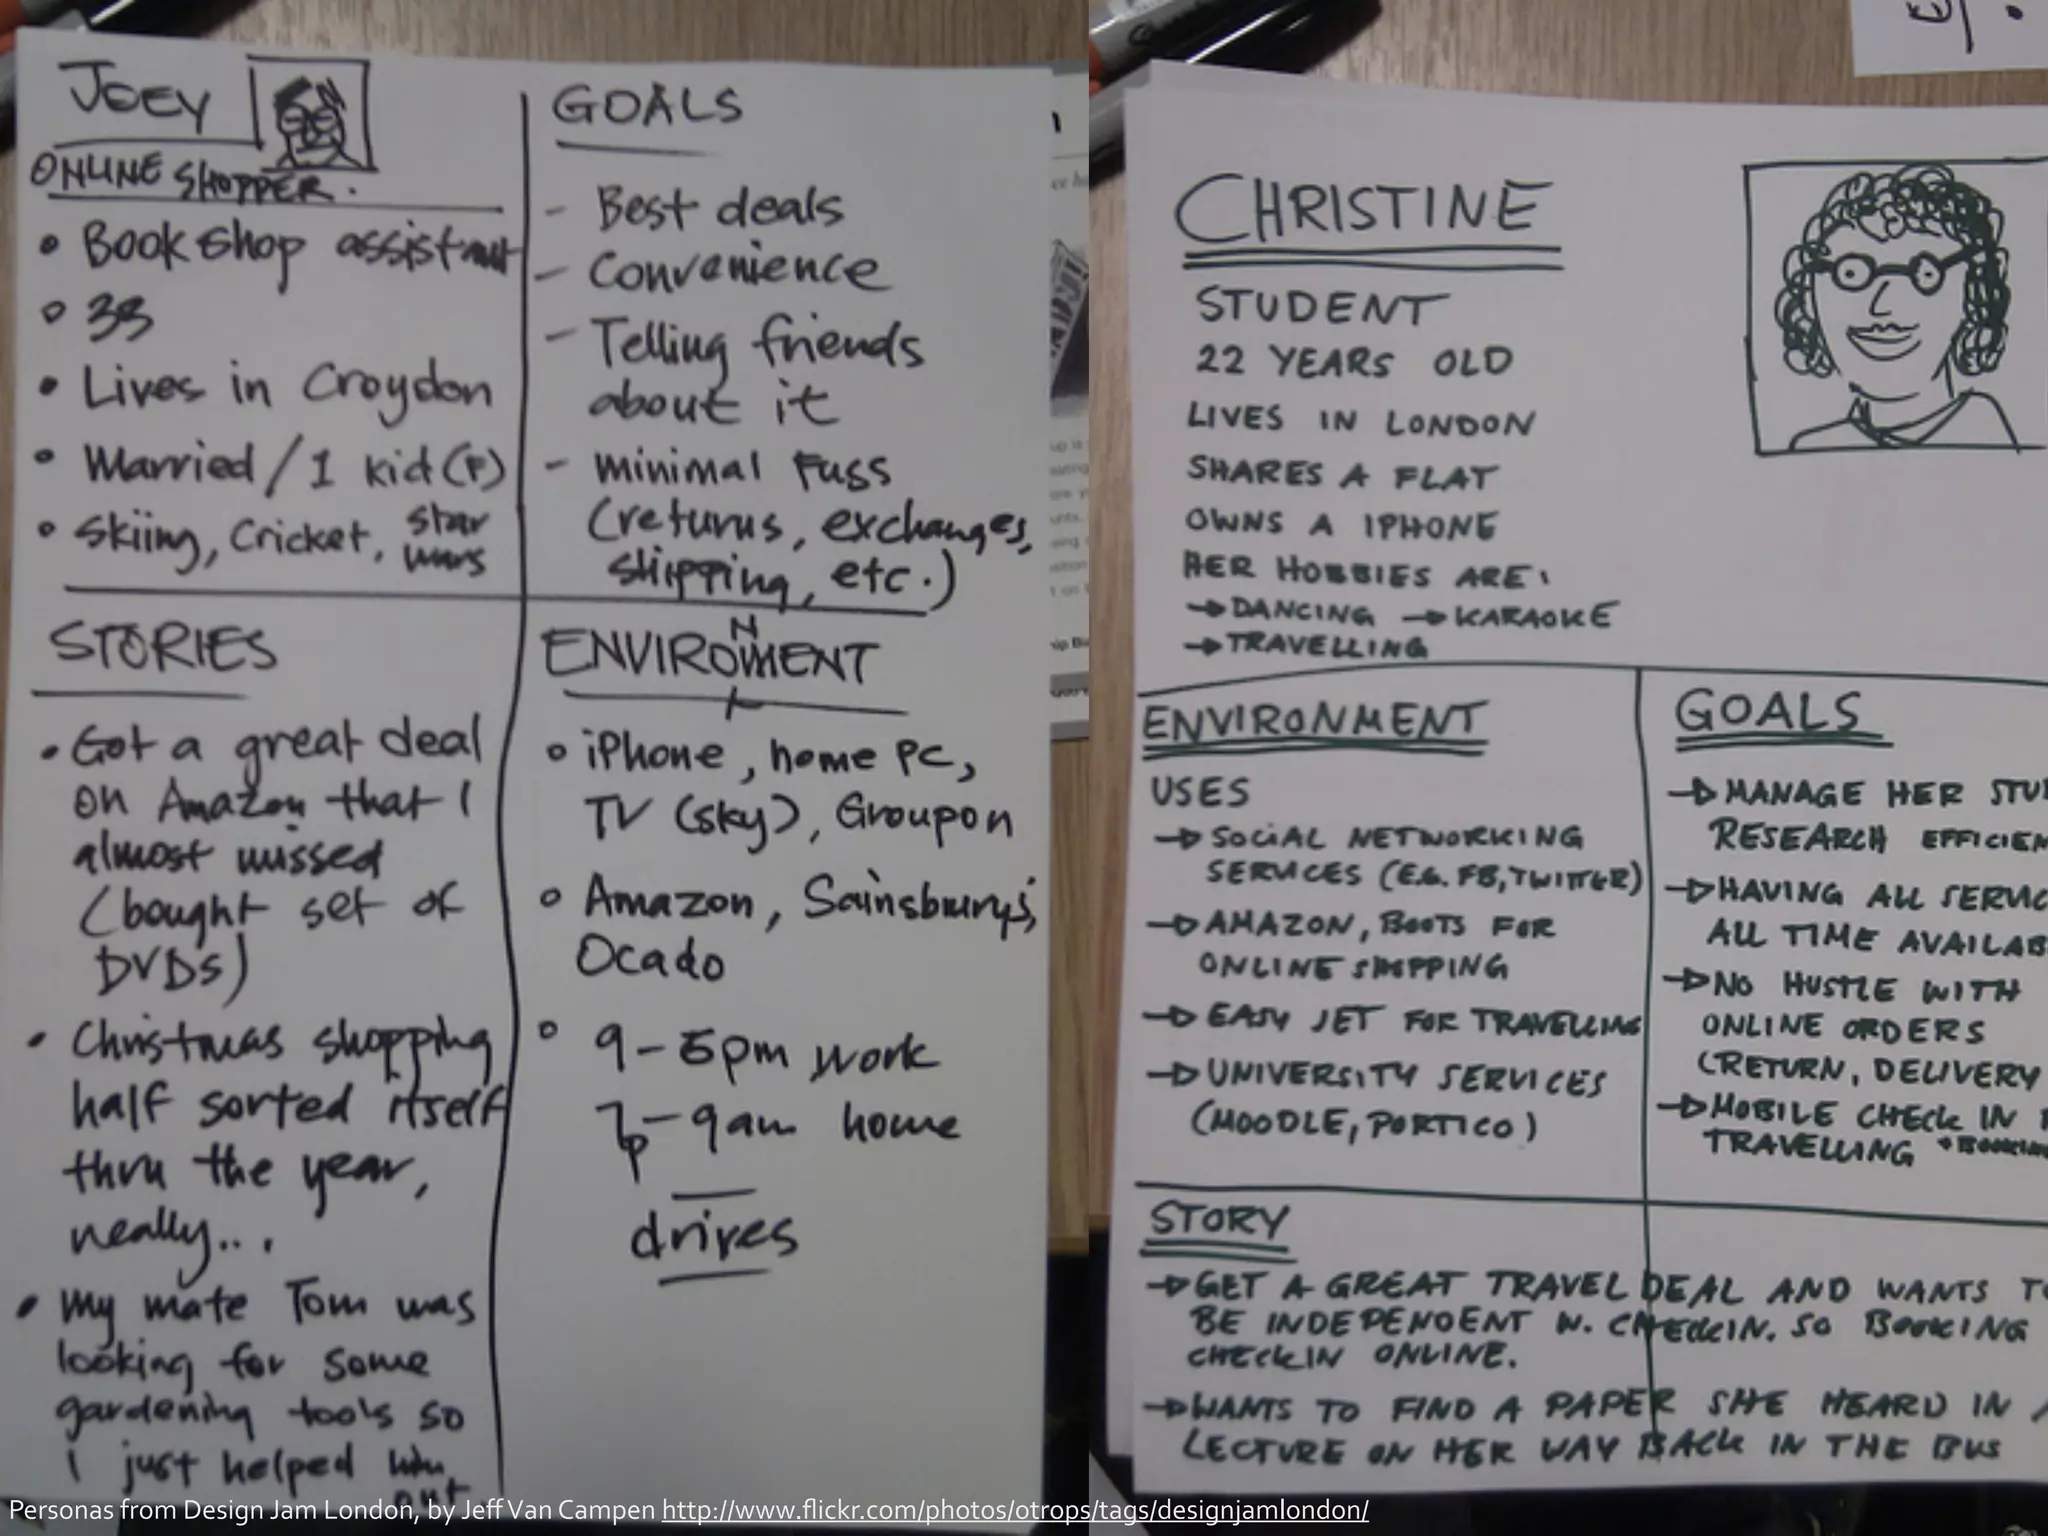 JOEY
ONLINE SHOPPER.
• Bookshop assistant
• 33
• Lives in Croydon
• Married/1 kid(F)
• Skiing, Cricket, Star
Wars
GOALS
- Best deals
- Convenience
- Telling friends
about it
- minimal fuss
(returns, exchanges,
shipping, etc.)
STORIES
• Got a great deal
on Amazon that I
almost missed
(bought set of
DVDs)
• Christmas shopping
half sorted itself
thru the year,
really...
• My mate Tom was
looking for some
gardening tools so
I just helped him
out
ENVIRONMENT
• iPhone, home PC,
TV (sky), Groupon
• Amazon, Sainsburys,
Ocado
• 9-5pm work
7p-9am home
drives
CHRISTINE
STUDENT
22 YEARS OLD
LIVES IN LONDON
SHARES A FLAT
OWNS A IPHONE
HER HOBBIES ARE:
→ DANCING → KARAOKE
→ TRAVELLING
ENVIRONMENT
USES
→ SOCIAL NETWORKING
SERVICES (E.G. FB, TWITTER)
→ AMAZON, BOOTS FOR
ONLINE SHOPPING
→ EASY JET FOR TRAVELLING
→ UNIVERSITY SERVICES
(MOODLE, PORTICO)
GOALS
→ MANAGE HER STU
RESEARCH EFFICIEN
→ HAVING ALL SERVIC
ALL TIME AVAILAB
→ NO HUSTLE WITH
ONLINE ORDERS
(RETURN, DELIVERY
→ MOBILE CHECK IN
TRAVELLING
STORY
→ GET A GREAT TRAVEL DEAL AND WANTS TO
BE INDEPENDENT W. CHECKIN. SO BOOKING
CHECKIN ONLINE.
→ WANTS TO FIND A PAPER SHE HEARD IN A
LECTURE ON HER WAY BACK IN THE BUS
Personas from Design Jam London, by Jeff Van Campen http://www.flickr.com/photos/otrops/tags/designjamlondon/